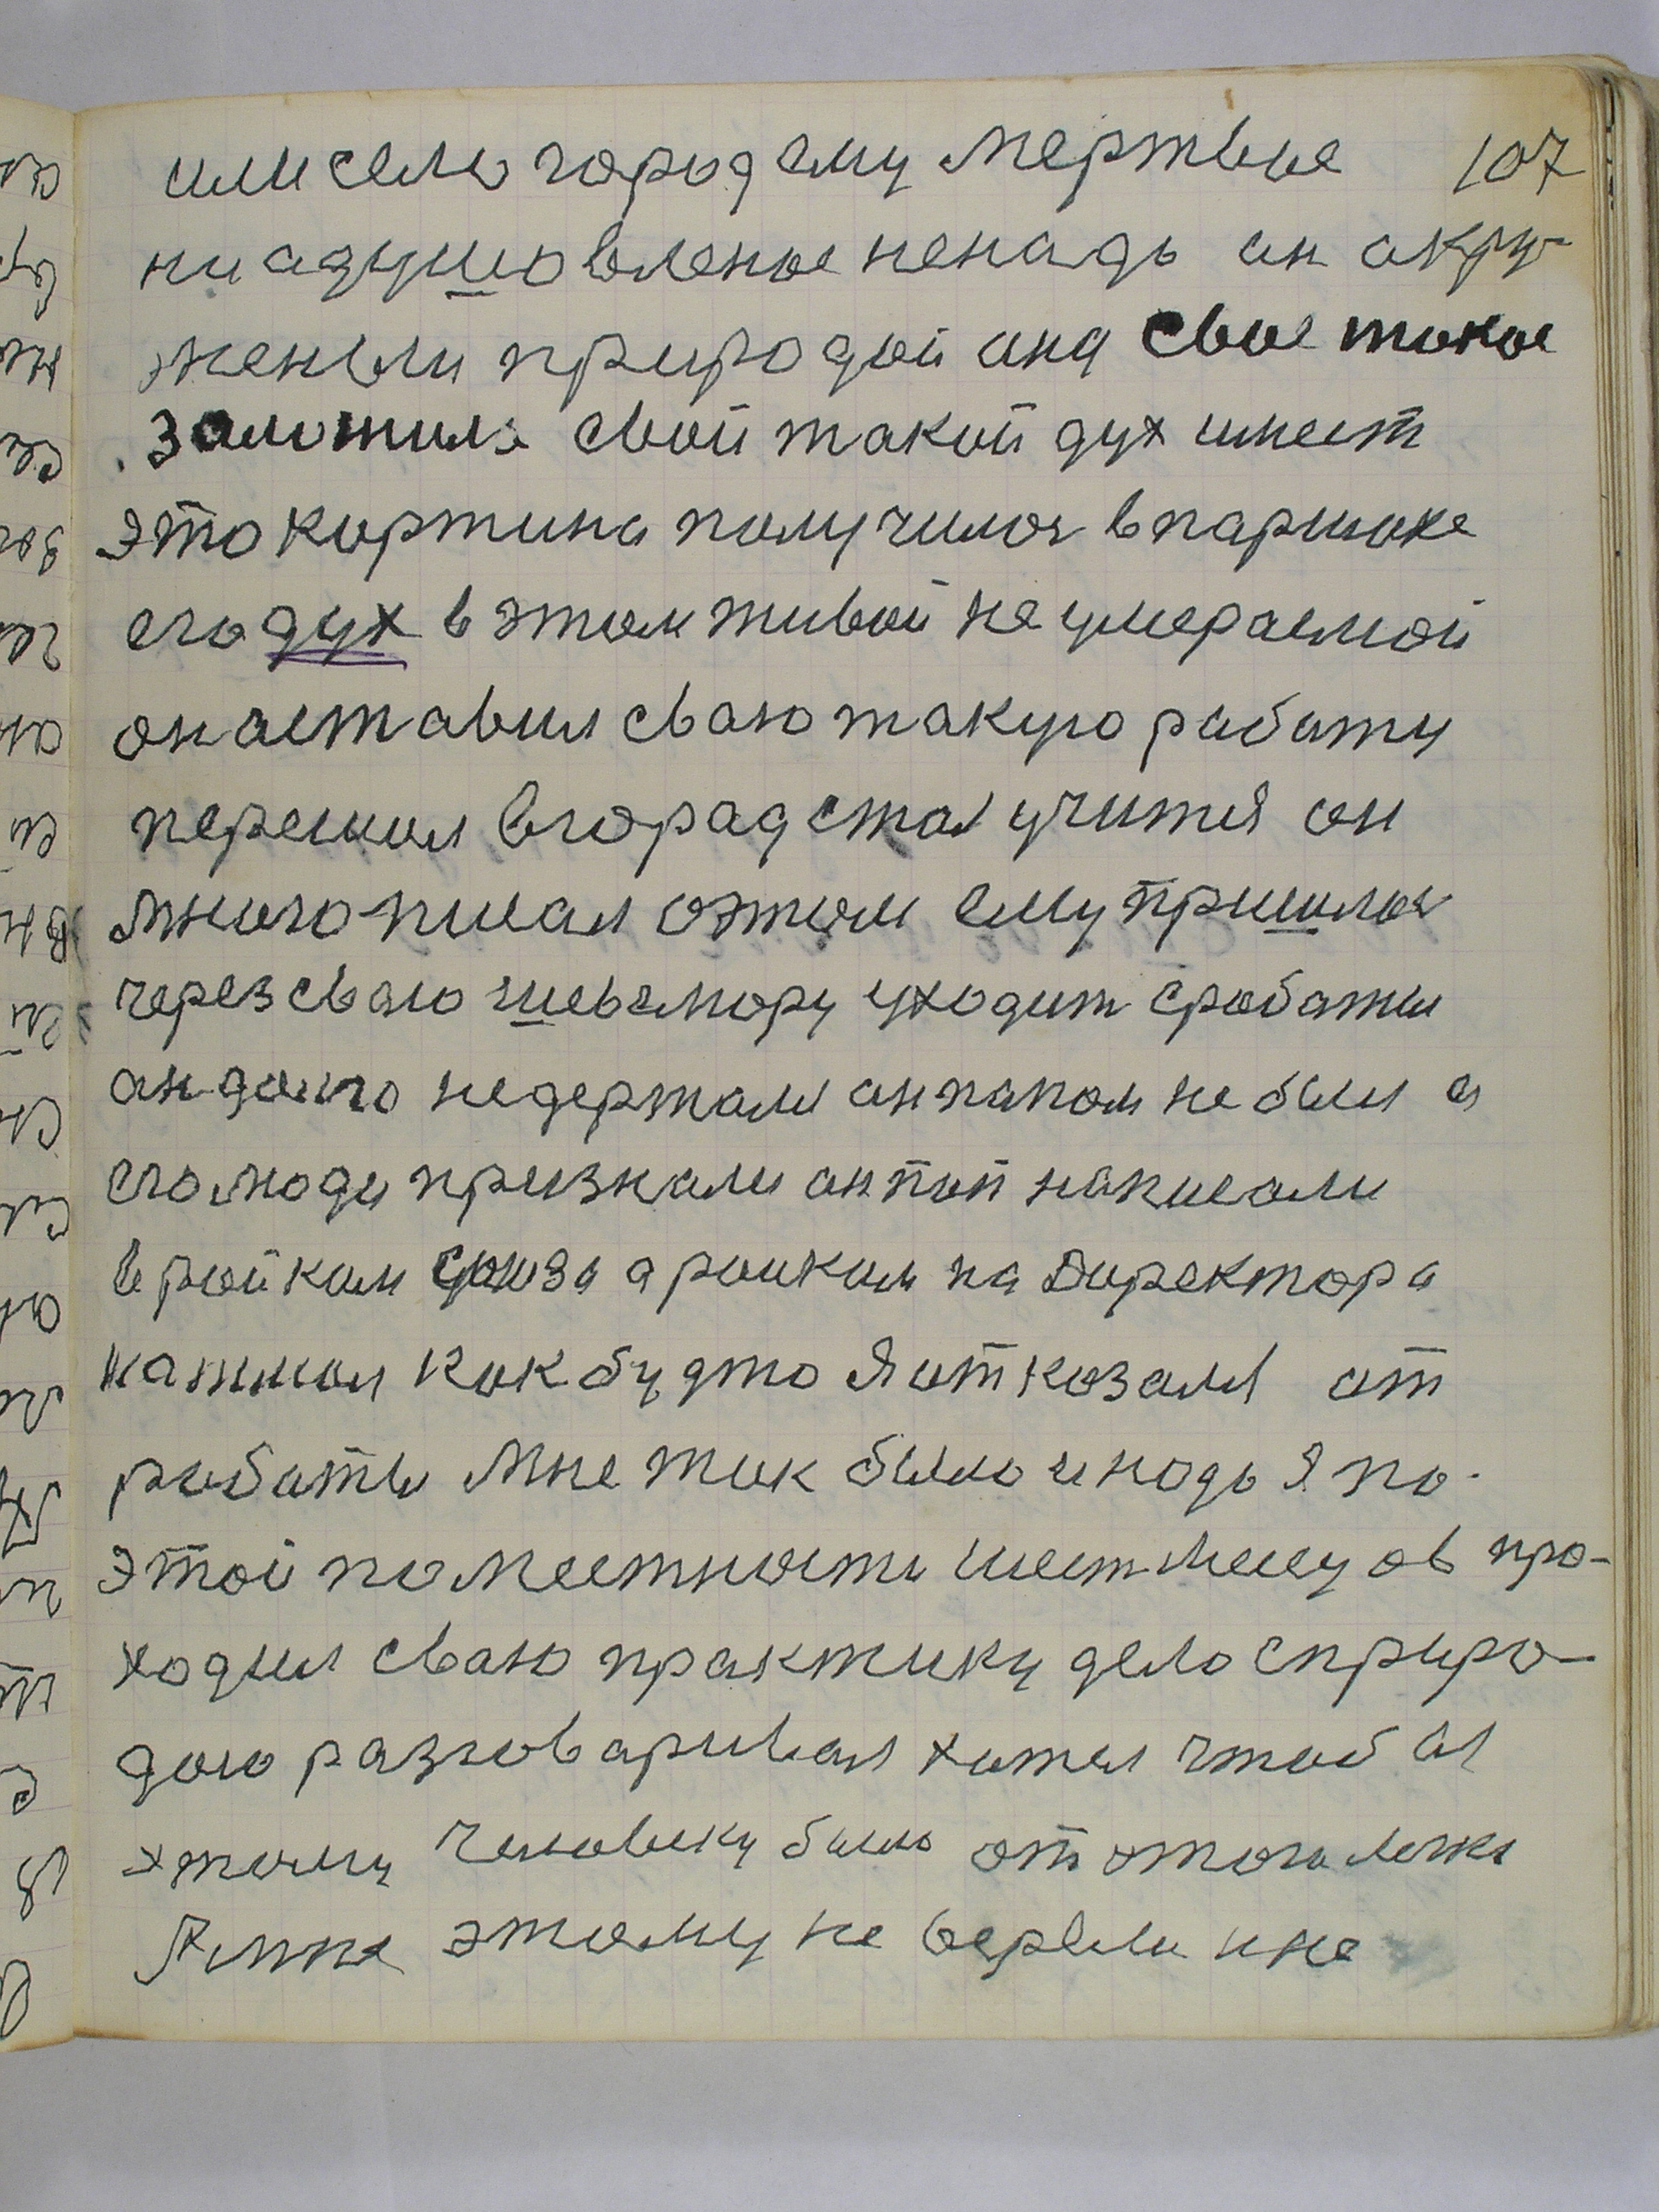 или село город ему мертвые 107
ниадушовленые ненадь он окру-
женыи природой она свое такое
заложила свой такой дух имеет
это картина получилоя впаршоке
егодух вэтом живой не умераемой
оноставил сваю такую работу
перешол вгорад стал учитя он
много писал оэтом ему пришлоя
через сваю шевемору уходит сработы
ан долго недержаля анпапом не был а
его люди признали он поп написали
врайком союза а райком на Директора
нажмал как будто Я отказаля от
работы мне так было инадо Я по-
этой по местности шест месецов про-
ходил сваю практику дело сприро-
дою разговаривал хател чтоб ы
этому человеку было от этого легко
этому не верели ине